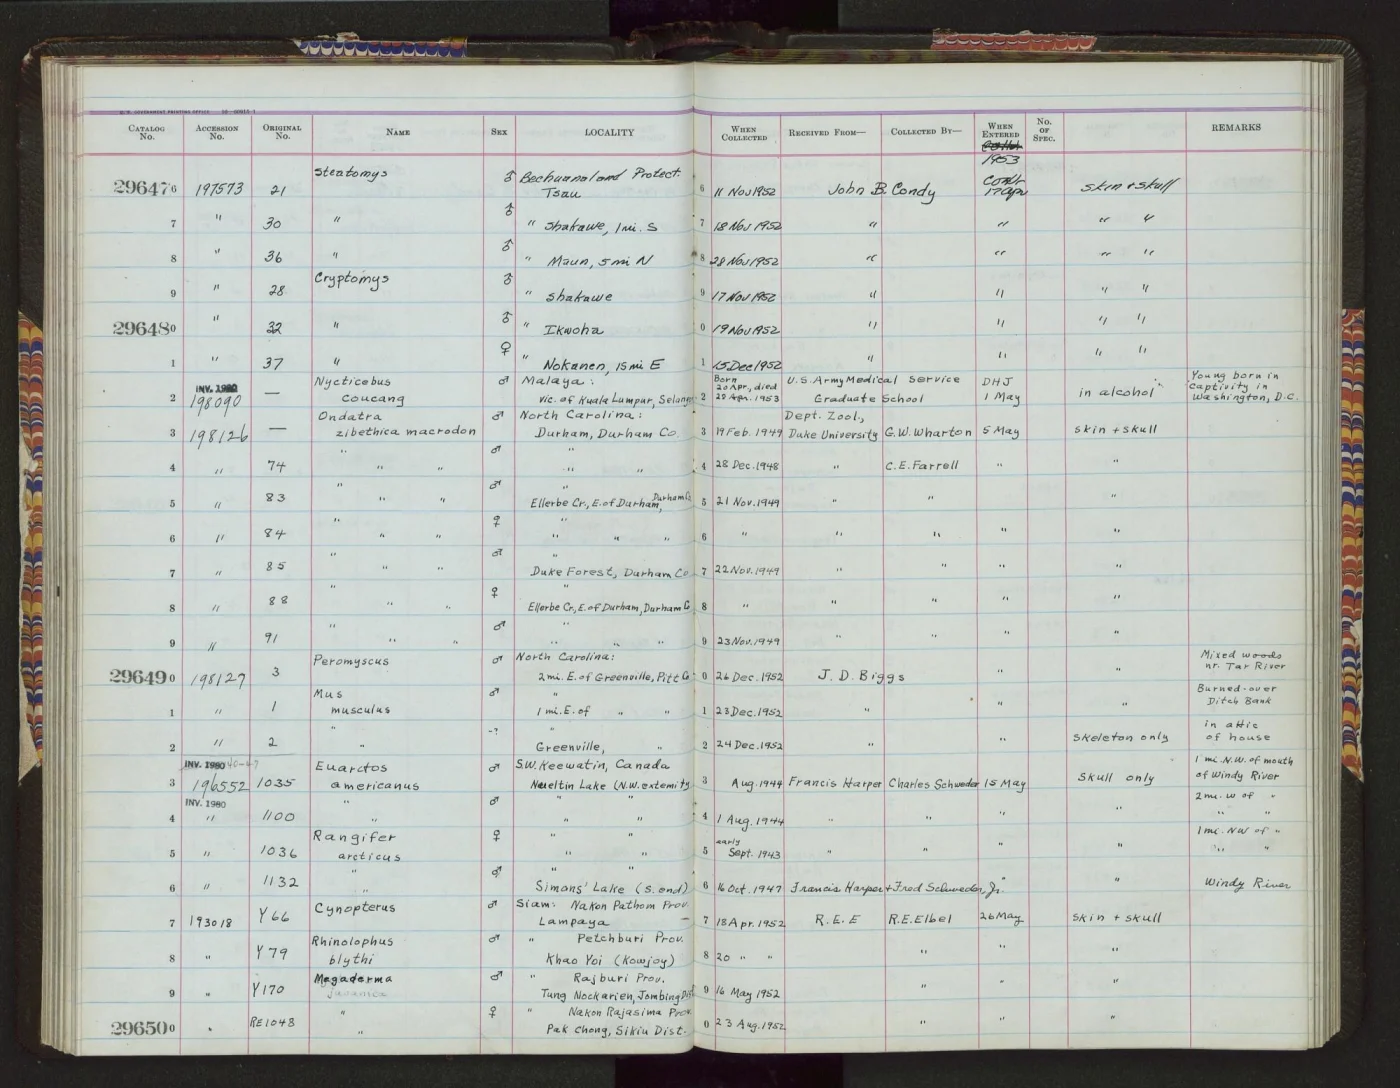 U. S. GOVERNMENT PRINTING OFFICE
CATALOG No. ACCESSION No. ORIGINAL No. NAME SEX LOCALITY WHEN COLLECTED RECEIVED FROM— COLLECTED BY— WHEN ENTERED No. OF SPEC. REMARKS
1953
Steatomys ♂ Bechuanaland Protect.
296476 197573 21 Tsau 6 11 Nov 1952 John B. Condy 17 Apr skin + skull
7 " 30 " ♂ " Shakawe, 1 mi. S 7 18 Nov 1952 " " " "
8 " 36 " ♂ " Maun, 5 mi N 8 28 Nov 1952 " " " "
Cryptomys ♂
9 " 28 " Shakawe 9 17 Nov 1952 " " " "
296480 " 32 " ♂ " Ikwoha 0 19 Nov 1952 " " " "
1 " 37 " ♀ " Nokanen, 15 mi E 1 15 Dec 1952 " " " "
INV. 1980 Nycticebus ♂ Malaya: Born 20 Apr., died U.S. Army Medical Service DHJ Young born in captivity in
2 198090 — coucang Vic. of Kuala Lumpur, Selangor 2 29 Apr. 1953 Graduate School 1 May in alcohol Washington, D.C.
Ondatra ♂ North Carolina: Dept. Zool.,
3 198126 — zibethica macrodon Durham, Durham Co. 3 19 Feb. 1949 Duke University G.W. Wharton 5 May skin + skull
" ♂ "
4 " 74 " " " " 4 28 Dec. 1948 " C.E. Farrell " "
" ♂ "
5 " 83 " " Ellerbe Cr., E. of Durham, Durham Co. 5 21 Nov. 1949 " " "
" ♀ "
6 " 84 " " " " " 6 " " " " "
" ♂ "
7 " 85 " " Duke Forest, Durham Co 7 22 Nov. 1949 " " " "
" ♀ "
8 " 88 " " Ellerbe Cr., E. of Durham, Durham Co 8 " " " " "
" ♂ "
9 " 91 " " " " " 9 23 Nov. 1949 " " " "
Peromyscus ♂ North Carolina: Mixed woods
296490 198127 3 2 mi. E. of Greenville, Pitt Co 0 26 Dec. 1952 J. D. Biggs " " nr. Tar River
Mus ♂ " Burned-over
1 " 1 musculus 1 mi. E. of " " 1 23 Dec. 1952 " " " Ditch Bank
" -? " in attic
2 " 2 " Greenville, " 2 24 Dec. 1952 " " skeleton only of house
INV. 1980 Euarctos ♂ S.W. Keewatin, Canada 1 mi. N.W. of mouth
3 196552 1035 americanus Nueltin Lake (N.W. extemity 3 Aug. 1944 Francis Harper Charles Schweder 15 May skull only of Windy River
INV. 1980 " ♂ " " 2 mi. W of "
4 " 1100 " " " 4 1 Aug. 1944 " " " " " "
Rangifer ♀ " " early 1 mi. NW of "
5 " 1036 arcticus " " 5 Sept. 1943 " " " " " "
" ♂ " "
6 " 1132 " Simons' Lake (S. end) 6 16 Oct. 1947 Francis Harper + Fred Schweder, Jr. " " Windy River
Cynopterus ♂ Siam: Nakon Pathom Prov.
7 193018 Y 66 Lampaya — 7 18 Apr. 1952 R. E. E R.E. Elbel 26 May skin + skull
Rhinolophus ♂ " Petchburi Prov.
8 " Y 79 blythi Khao Yoi (Kowjoy) 8 20 " " " " "
Megaderma ♂ " Rajburi Prov.
9 " Y170 Tung Nockarien, Jombing Dist 9 16 May 1952 " " "
" ♀ " Nakon Rajasima Prov.
296500 " RE1048 " Pak Chong, Sikiu Dist. 0 23 Aug. 1952 " " "